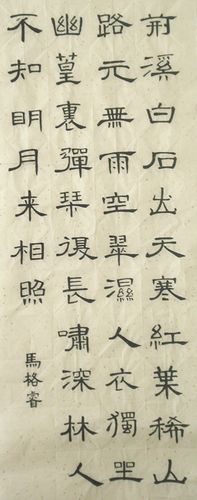 荊溪白石出天寒紅葉稀山
路元無雨空翠濕人衣獨坐
幽篁裏彈琴復長嘯深林人
不知明月来相照
馬格睿